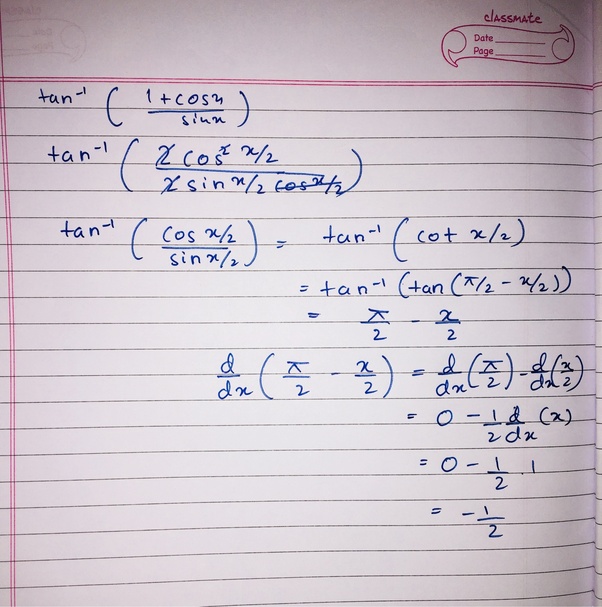 classmate
Date
Page
tan⁻¹ ( (1 + cosx) / sinx )
tan⁻¹ ( (2 cos² x/2) / (2 sin x/2 cos x/2) )
tan⁻¹ ( (cos x/2) / (sin x/2) ) = tan⁻¹ ( cot x/2 )
= tan⁻¹ (tan (π/2 - x/2))
= π/2 - x/2
d/dx ( π/2 - x/2 ) = d/dx (π/2) - d/dx (x/2)
= 0 - 1/2 d/dx (x)
= 0 - 1/2 . 1
= - 1/2